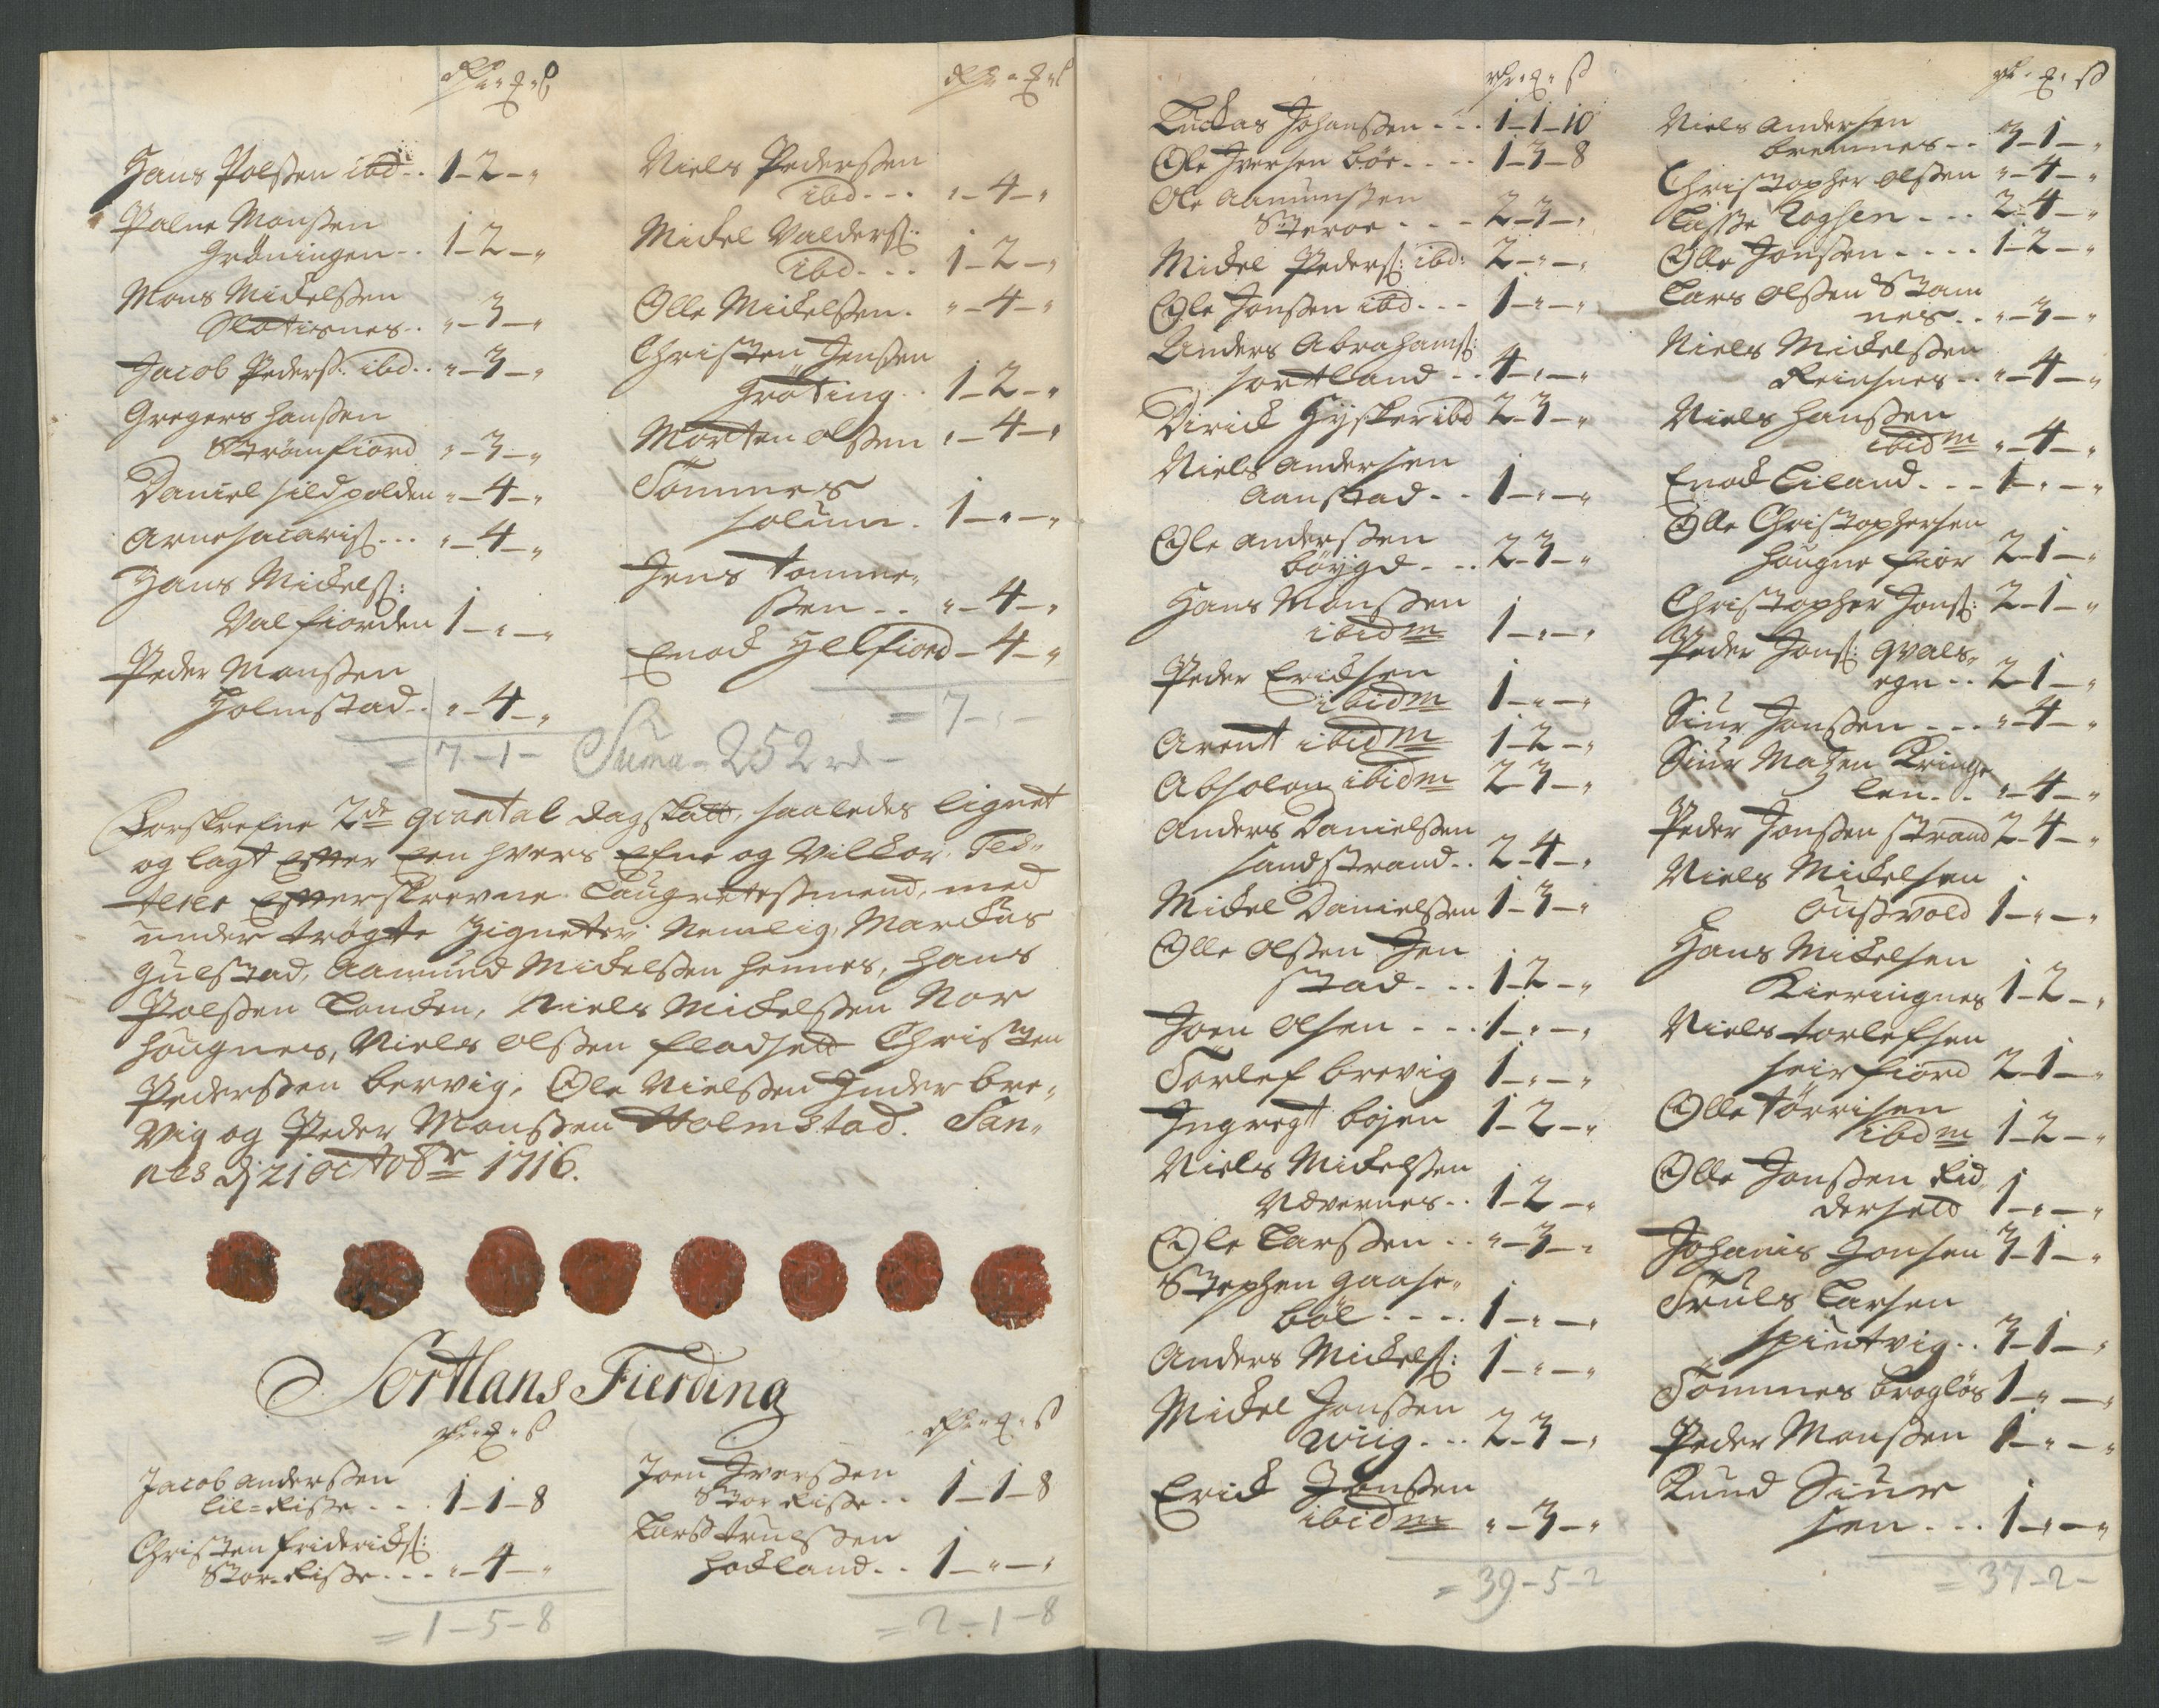 Hans Polssen ibd.. 1-2-"
Palne Monssen
Gröningen.. 1-2-"
Mons Mickelssen
Slotisnes.. "-3-"
Jacob Peders: ibd.. "-3-"
Gregers Hanssen
Strömfiord "-3-"
Daniel Sildpolden "-4-"
Arne Sacaris: ... "-4-"
Hans Mickels:
Valfiorden 1-"-"
Peder Monssen
Holmstad.. "-4-"
= 7-1-
Niels Pederssen
ibd... "-4-"
Mickel Valders:
ibd... 1-2-"
Olle Mickelssen. "-4-"
Christen Jenssen
Gröting.. 1-2-"
Morten Olssen "-4-"
Tommes
Solum. 1-"-"
Jens Tomme-
ssen.. "-4-"
Enock Helfiord -4-"
= 7-"-
Suma - 252 rd -
Forskrefne 2de qvartal dagskatt, saaledes lignet
og lagt efter een hvers Efne og Vilkor. Tes-
terer Efterskrevne Laugrettesmend, med
under trögte Zigneter Nemlig, Marckus
Gulstad, Aamund Mickelssen Hennes, Hans
Polssen Loncken, Niels Mickelssen Nor
Hougnes, Niels Olssen Fladsett Christen
Pederssen Bervig, Ole Nielssen Inder bre-
vig og Peder Monssen Holmstad. San-
nes dj 21 octobr 1716.
Sortlans Fierding
Jacob Anderssen
Lil=Risse... 1-1-8
Christen Fridericks:
Stor-Risse... "-4-"
= 1-5-8
Joen Iverssen
Stor Risse.. 1-1-8
Lars Trulssen
Hockland.. 1-"-"
= 2-1-8
Luckas Johanssen... 1-1-10
Ole Iversen Böe.... 1-3-8
Ole Aamunssen
Steroe... 2-3-"
Mickel Peders: ibd: 2-"-"
Ole Jonssen ibd... 1-"-"
Anders Abrahams:
Sortland.. 4-"-"
Dirick Hysker ibd 2-3-"
Niels Andersen
Aanstad.. 1-"-"
Ole Anderssen
böygd... 2-3-"
Hans Monssen
ibidm 1-"-"
Peder Ericksen
ibidm 1-"-"
Arent ibidm 1-2-"
Absolon ibidm 2-3-"
Anders Danielssen
Sandstrand.. 2-4-"
Mickel Danielssen 1-3-"
Olle Olssen Jen
stad... 1-2-"
Joen Olsen... 1-"-"
Torlef Brevig 1-"-"
Ingregt Bojen 1-2-"
Niels Mickelssen
Vævernes.. 1-2-"
Ole Larssen.. "-3-"
Stephen Gaase-
böl.... 1-"-"
Anders Mickels: 1-"-"
Mickel Jonssen
Wiig... 2-3-"
Erick Jonssen
ibidm "-3-"
= 39-5-2
Niels Andersen
Bremnes.. 3-1-"
Christopher Olssen "-4-"
Lasse Rogsen... 2-4-"
Olle Jonssen.... 1-2-"
Lars Olssen Stam
nes.. "-3-"
Niels Mickelssen
Reinsnes.. "-4-"
Niels Hanssen
ibidm "-4-"
Enock Eiland... 1-"-"
Olle Christophersen
Hougne fior 2-1-"
Christopher Jons: 2-1-"
Peder Jons: Qvals-
egn.. 2-1-"
Siur Jonssen... "-4-"
Siur Mazen Kringe
len... "-4-"
Peder Jonssen Strand 2-4-"
Niels Mickelsen
Ousvold 1-"-"
Hans Mickelsen
Kieringnes 1-2-"
Niels Torlefsen
Seirfiord 2-1-"
Olle Törrisen
ibdm 1-2-"
Olle Jonssen Rid
dersett 1-"-"
Johanis Jonsen 3-1-"
Truls Larsen
Spiutvig.. 3-1-"
Tommes Broglös 1-"-"
Peder Monssen 1-"-"
Knud Siur
sen... 1-"-"
= 37-2-